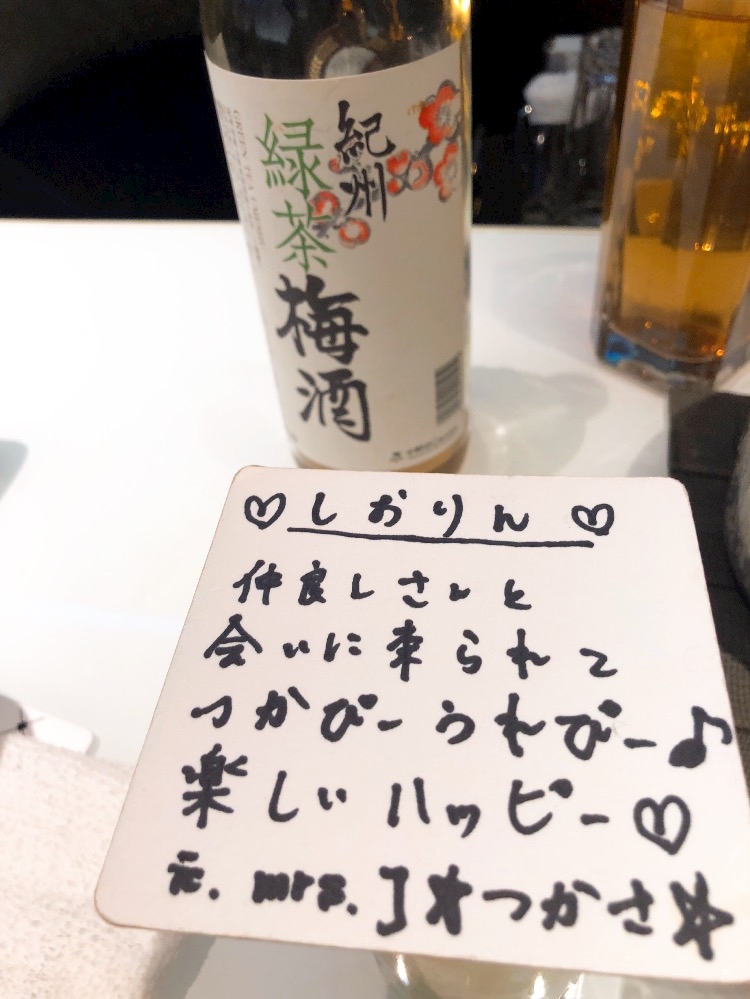 紀州
緑茶
梅酒
♡しおりん♡
仲良しさんと
会いに来られて
つかぴー うれぴー♪
楽しい ハッピー♡
元. mrs. J★つかさ☆